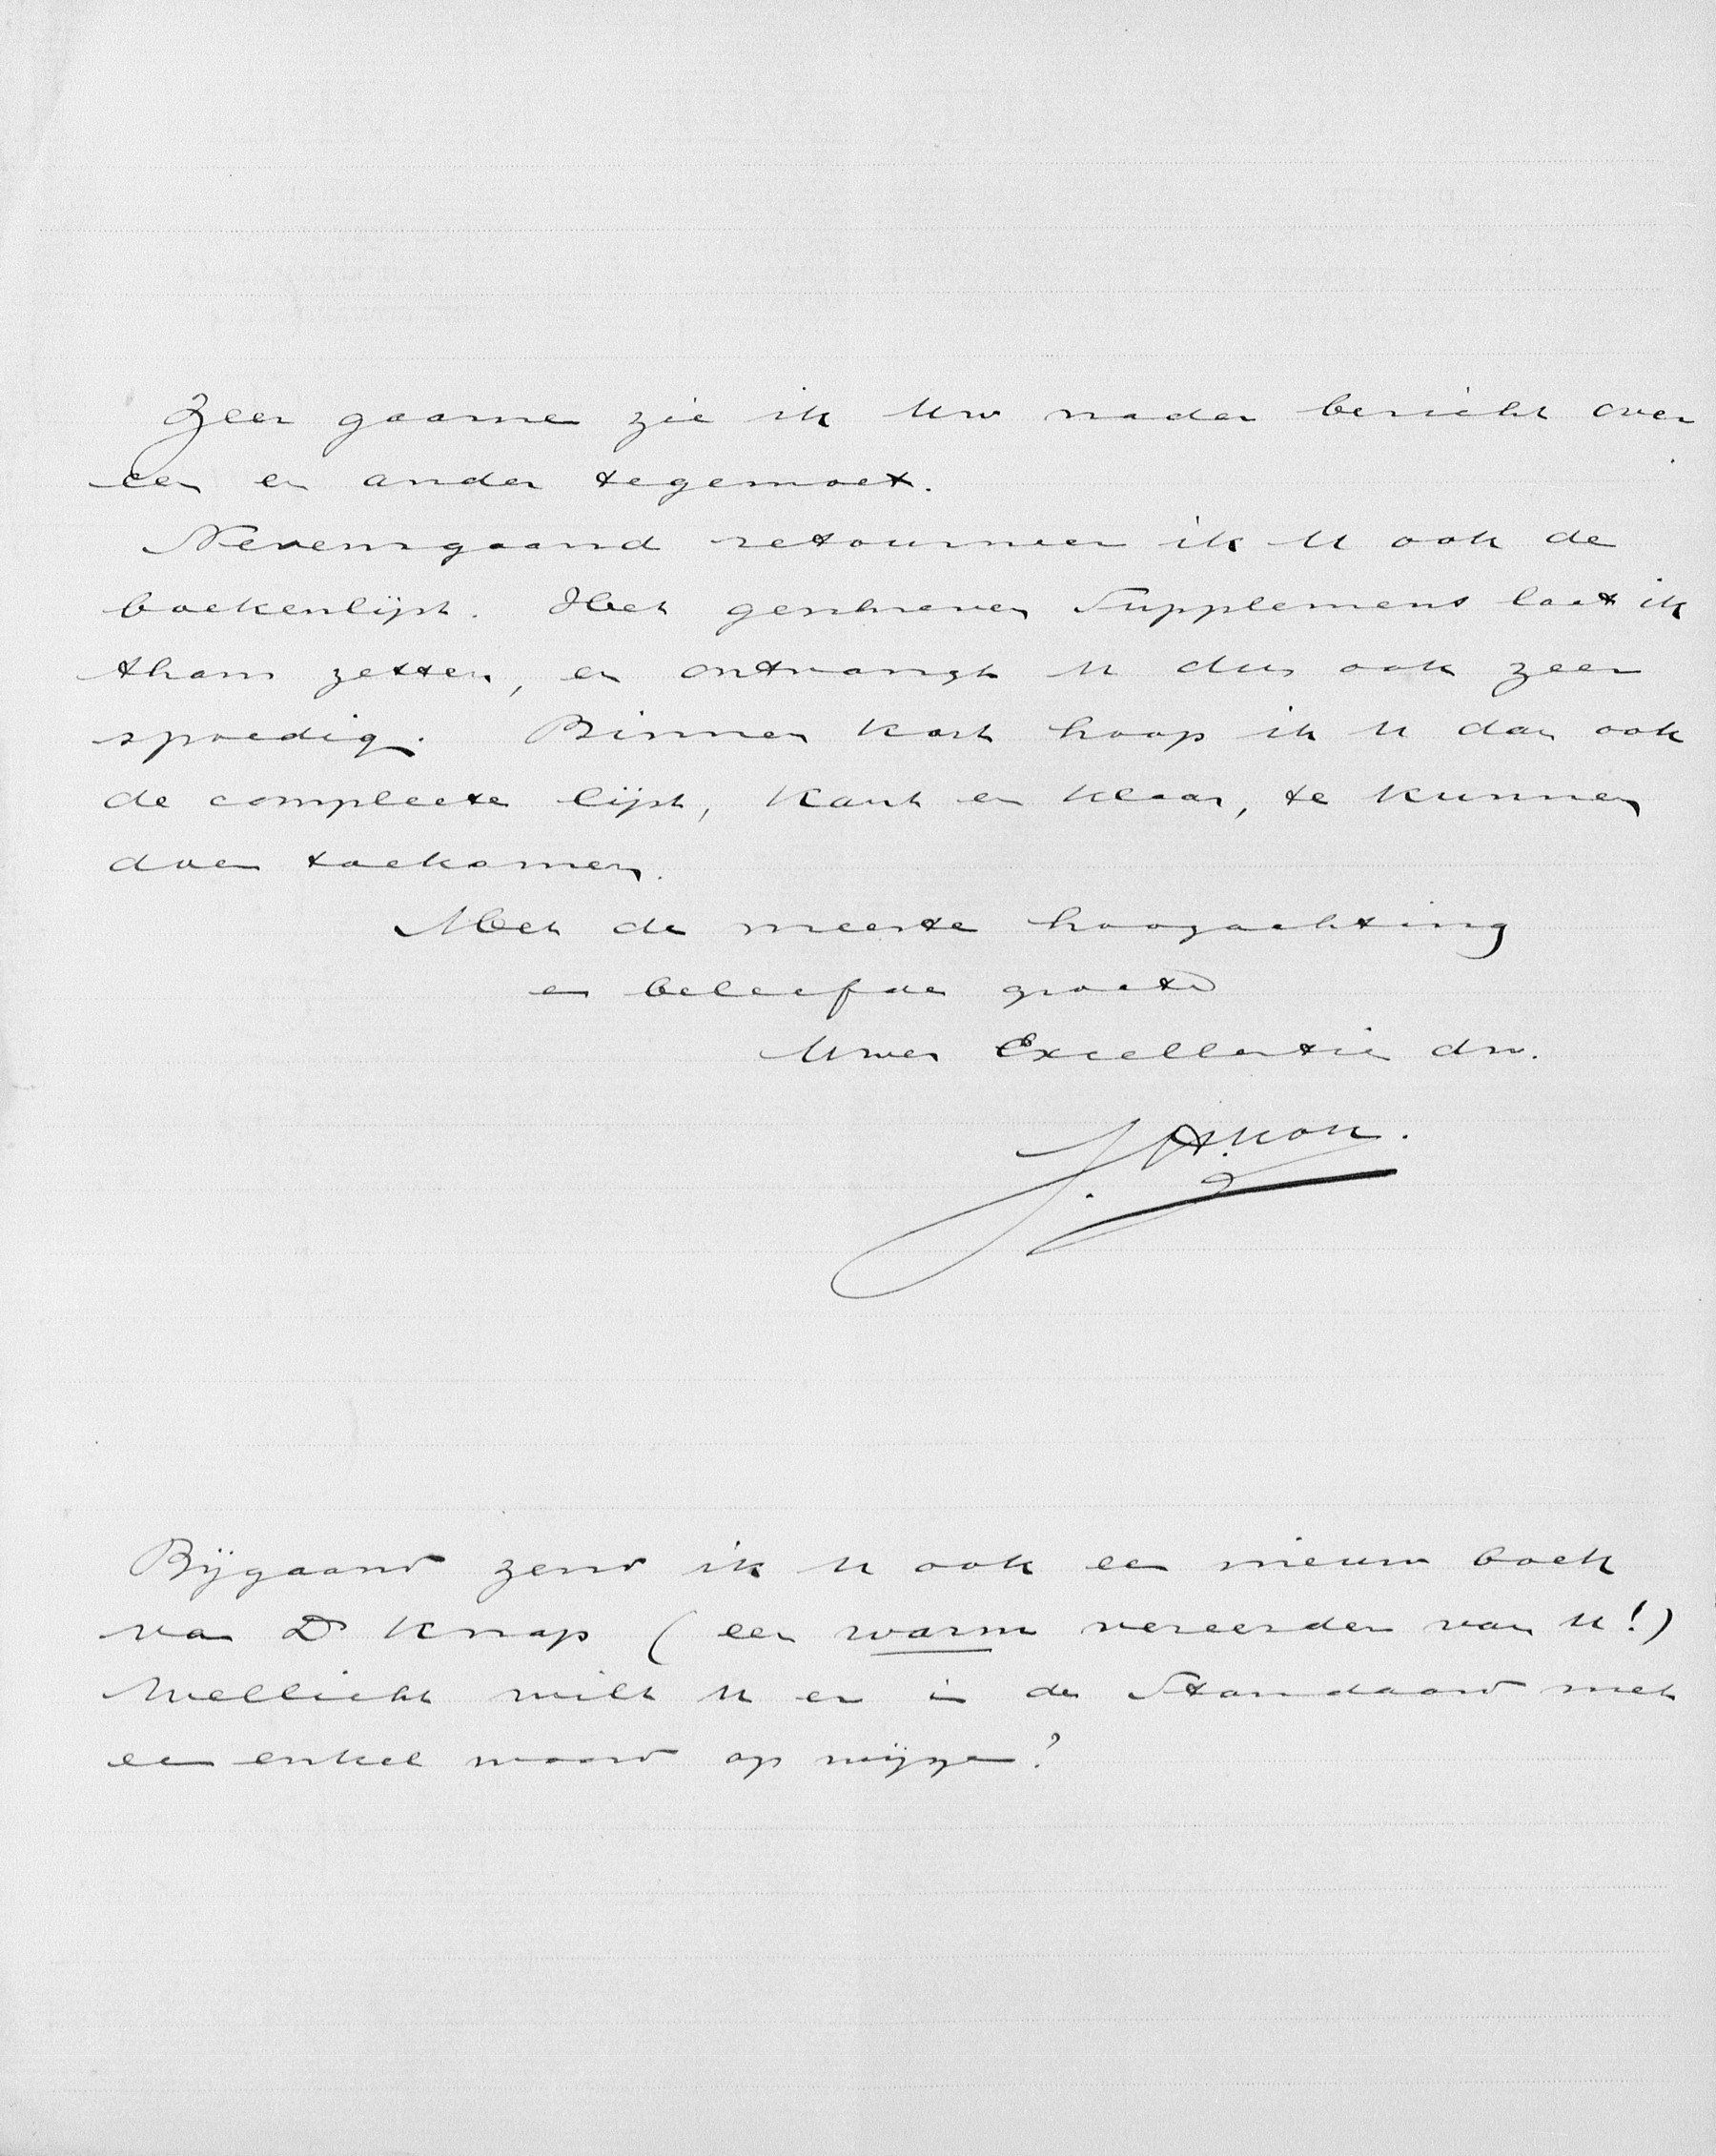 Zeer gaarne zie ik Uw nader bericht over
een en ander tegemoet.
Nevensgaand retourneer ik U ook de
boekenlijst. Het geschreven Supplement laat ik
thans zetten, en ontvangt U dus ook zeer
spoedig. Binnen kort hoop ik U dan ook
de compleete lijst, kant en klaar, te kunnen
doen toekomen.
Met de meeste hoogachting
en beleefde groete
Uwer Excellentie dw.
J. H. Kok.
Bijgaand zend ik U ook een nieuw boek
van Dr Knap (een warm vereerder van U!)
Wellicht wilt U er in de Standaard met
een enkel woord op wijzen?